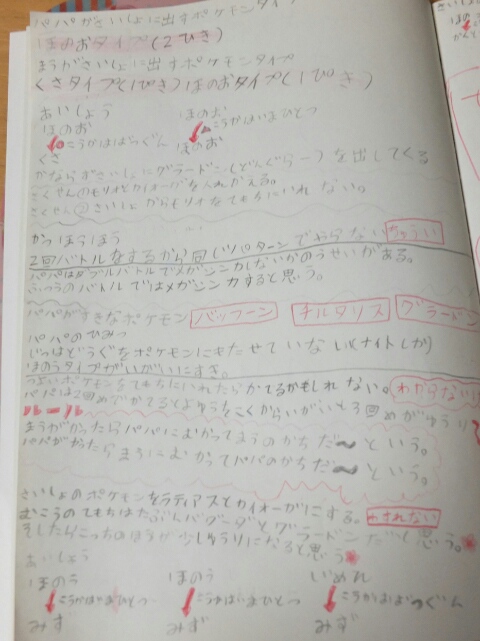 パパがさいしょに出すポケモンタイプ
ほのおタイプ(2ひき)
まうがさいしょに出すポケモンタイプ
くさタイプ(1ぴき)ほのおタイプ(1ぴき)
あいしょう
ほのお
こうかはばつぐん
くさ
ほのお
こうかはいまひとつ
ほのお
かならずさいしょにグラードン(どんぐらーつ)を出してくる
さくせん①モリオとカイオーガを入れかえる。
さくせん②さいしょからモリオをてもちにいれない。
かつほうほう
2回バトルをするから同じパターンでやらない ちゅうい
パパはダブルバトルでメガシンカしないかのうせいがある。
ふつうのバトルではメガシンカすると思う。
パパがすきなポケモン バッフーン チルタリス グラードン
パパのひみつ
じつはどうぐをポケモンにもたせていない(ナイトしか)
ほのうタイプがいがいにすき。
つよいポケモンをてもちにいれたらかてるかもしれない。 わからない
パパは2回めでかてるとよゆう
ルール
まうがかったらパパにむかってまうのかちだ〜という。
パパがかったらまうにむかってパパのかちだ〜という。
さいしょのポケモンをラティアスとカイオーガにする。 わすれない
むこうのてもちはたぶんバクーダとグラードンだと思う。
そしたらこっちのほうが少しゆうりになると思う
あいしょう
ほのう
こうかはいまひとつ
みず
ほのう
こうかはいまひとつ
みず
いめれ
こうかはばつぐん
みず